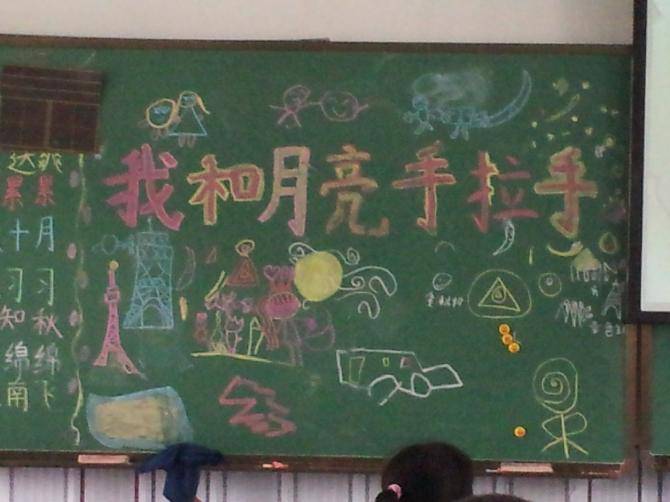 我和月亮手拉手
达
果 果
十月
习习
知秋
绵绵
南飞